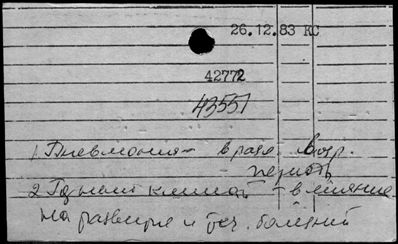 26.12.83 КС
42772
43557
1. Пневмония - в разл. возр.
периоды
2 Горный климат - влияние
на развитие и теч. болезней